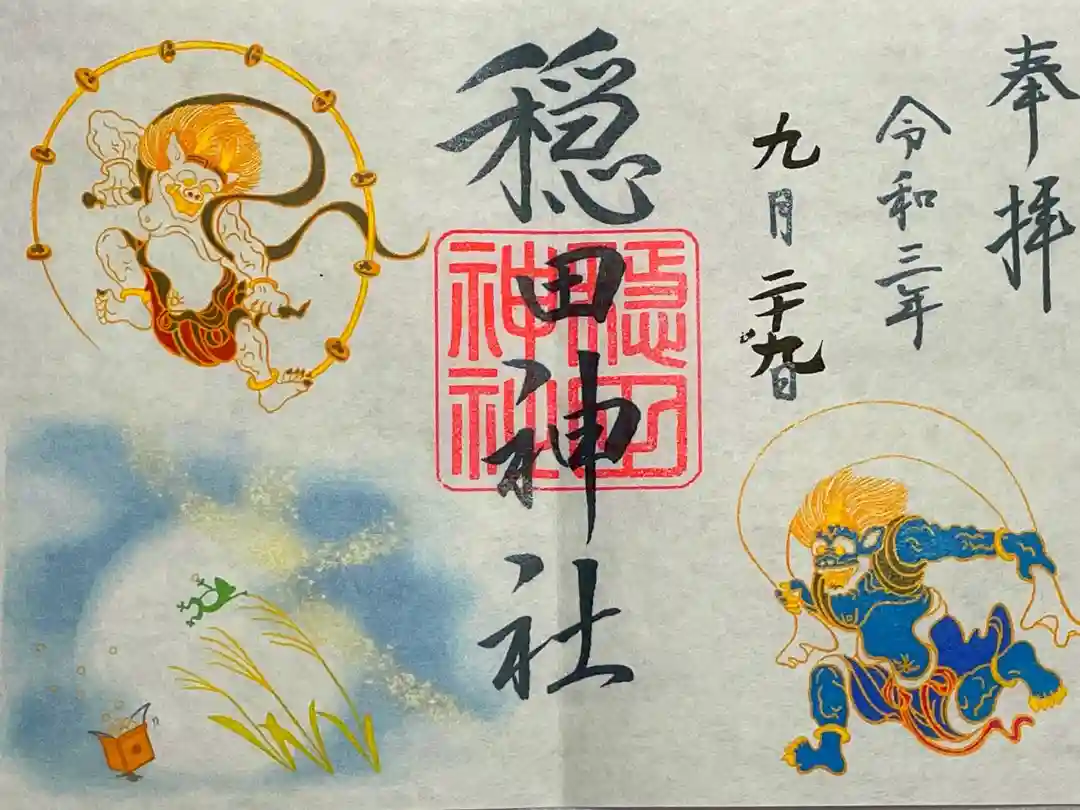 奉拝
令和三年
九月二十九日
穏田神社
隠田
神社